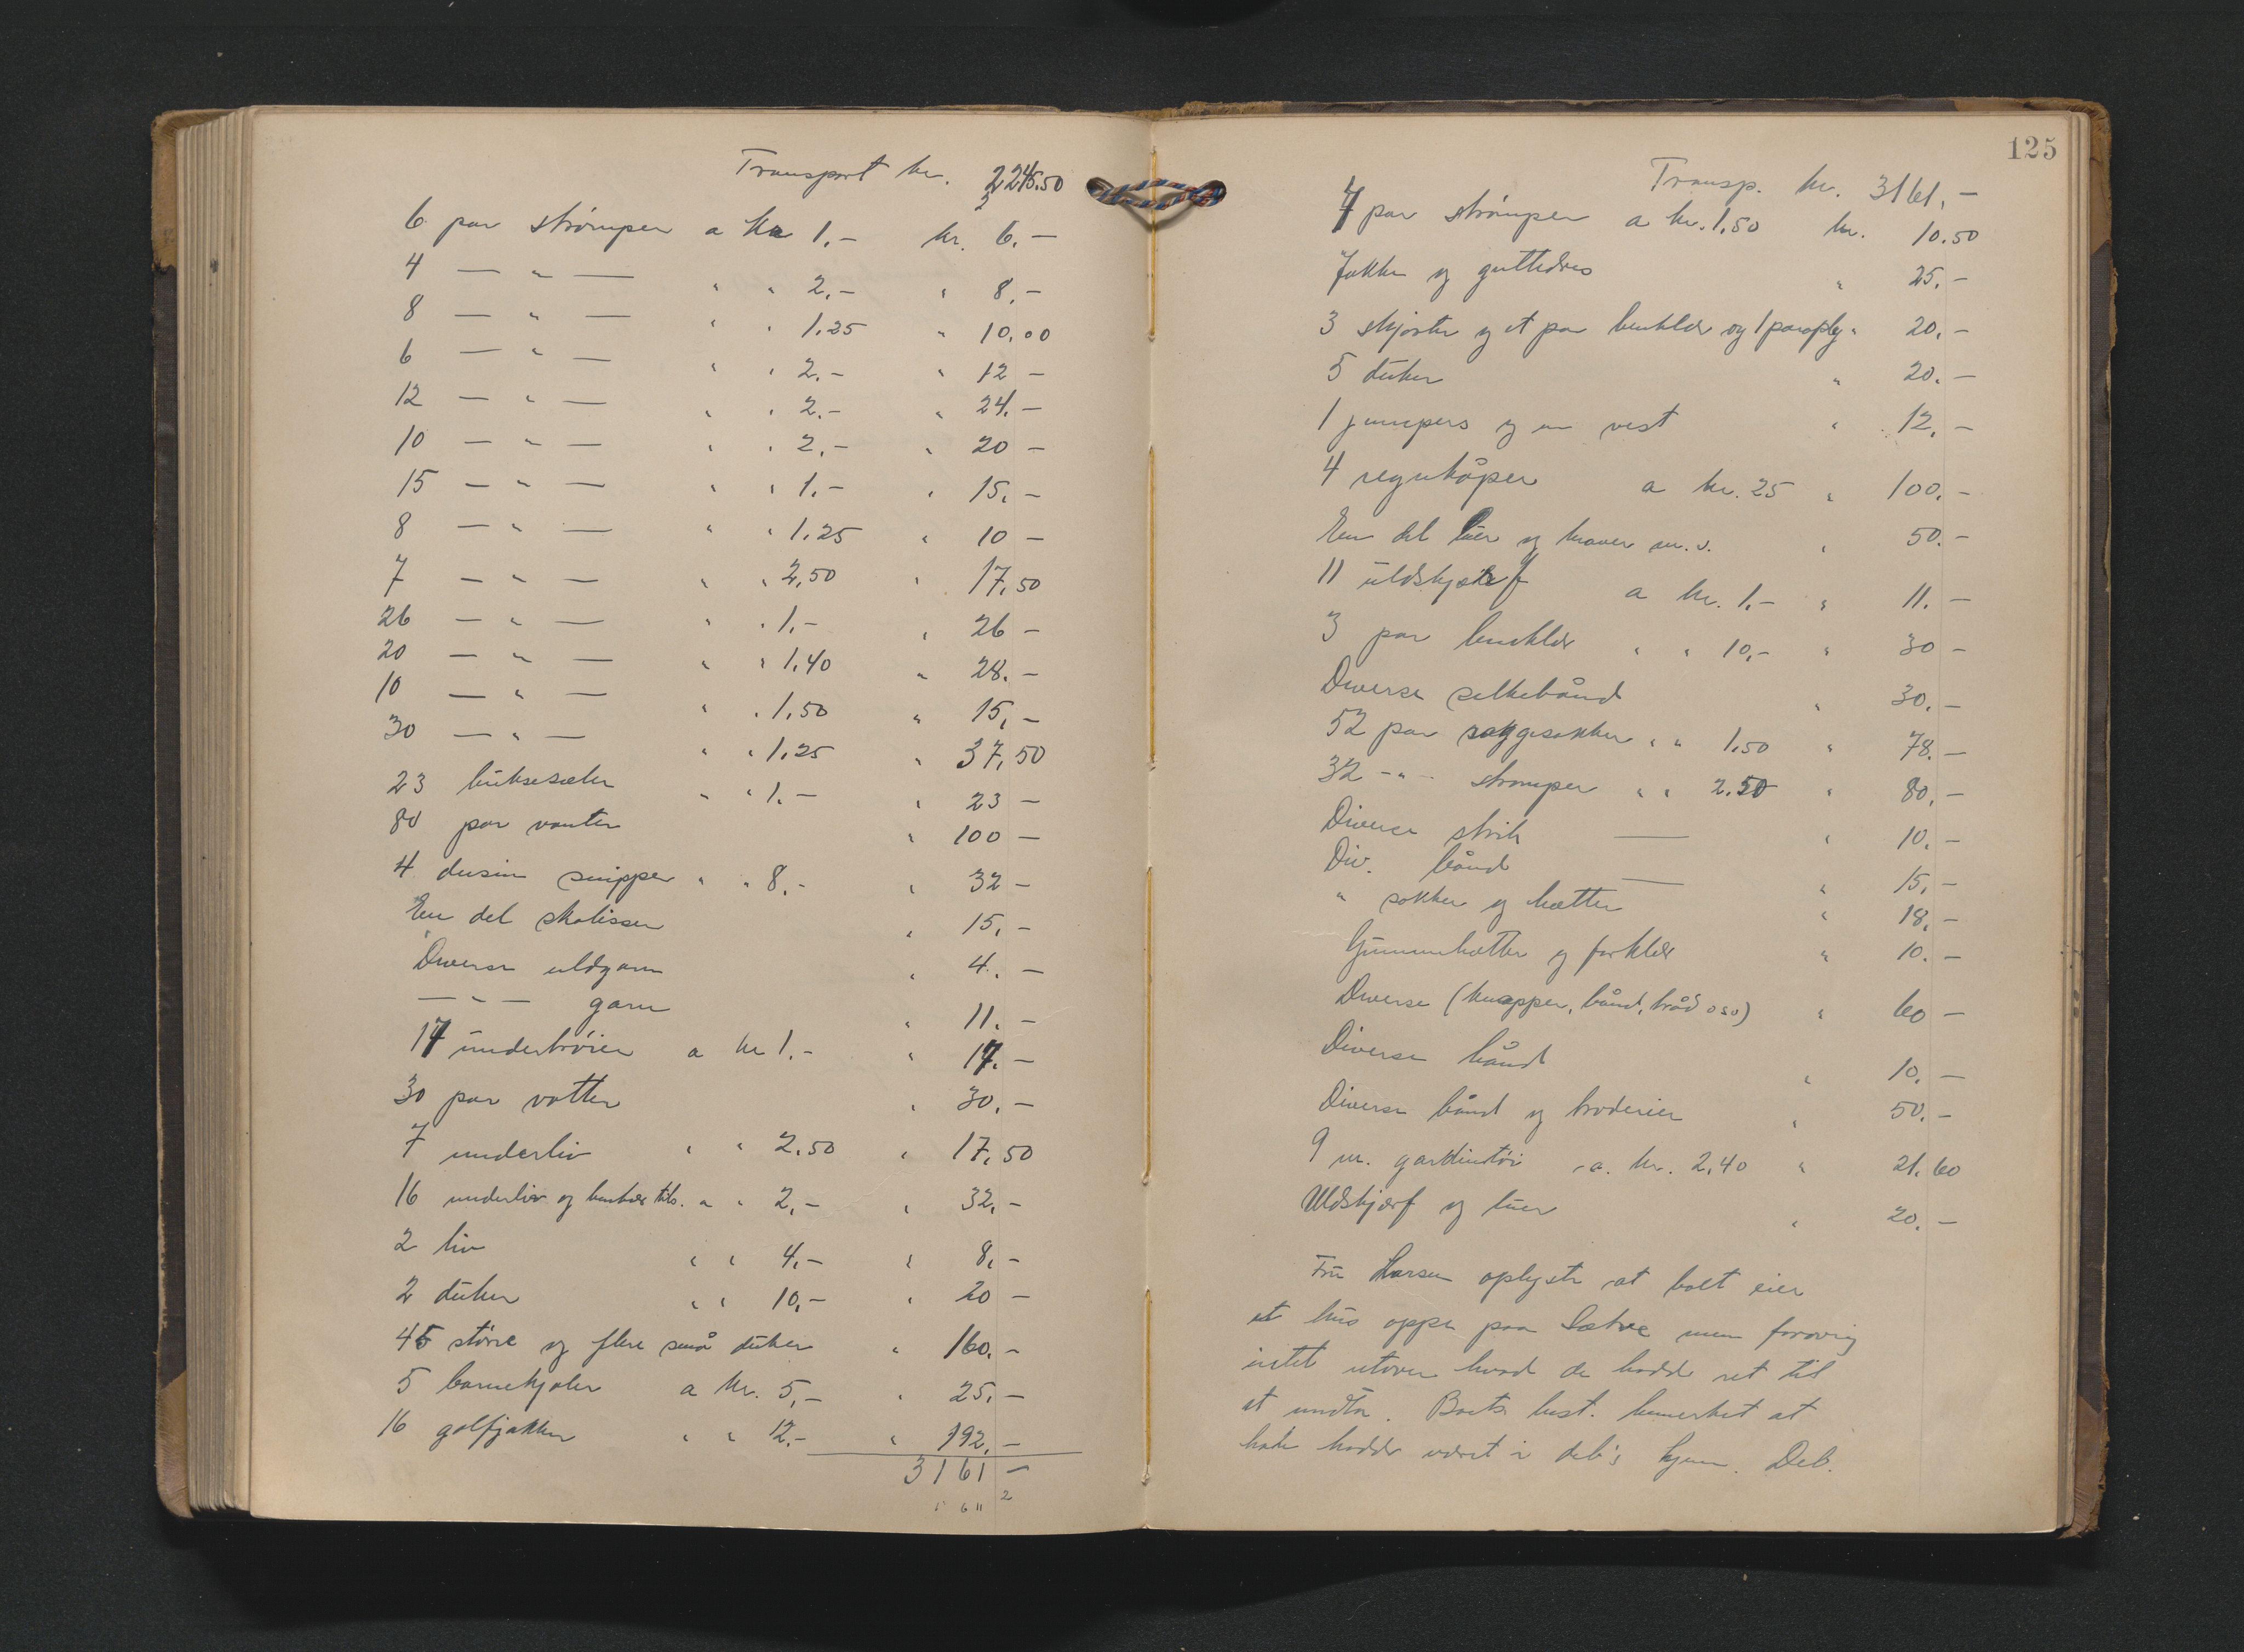 Transport kr. 2245.50
6 par strømper a kr 1.- kr. 6.-
4 — " — " " 2.- " 8.-
8 — " — " " 1.25 " 10.00
6 — " — " " 2.- " 12 -
12 — " — " " 2.- " 24.-
10 — " — " " 2.- " 20 -
15 — " — " " 1.- " 15.-
8 — " — " " 1.25 " 10 -
7 — " — " " 2,50 " 17,50
26 — " — " " 1.- " 26 -
20 — " — " " 1.40 " 28.-
10 — " — " " 1.50 " 15,-
30 — " — " " 1.25 " 37,50
23 buksesæler " " 1.- " 23 -
80 par vanter " 100 -
4 dusin snipper " " 8.- " 32 -
En del skolisser " 15.-
Diverse uldgarn " 4.-
— " — garn " 11.-
17 undertrøier a kr 1.- " 17.-
30 par votter " 30.-
7 underliv " " 2.50 " 17,50
16 underliv og benklær tils. " " 2,- " 32,-
2 liv " " 4.- " 8,-
2 duker " " 10,- " 20 -
45 større og flere små duker " 160.-
5 barnekjoler a kr. 5,- " 25.-
16 golfjakker " " 12.- " 192.-
3161 -
125
Transp. kr. 3161,-
7 par strømper a kr. 1.50 kr. 10.50
Jakke og guttedres " 25.-
3 skjorter og et par benklær og 1 paraply " 20.-
5 duker " 20.-
1 jumpers og en vest " 12.-
4 regnkåper a kr. 25 " 100.-
En del luer og kraver m.v. " 50.-
11 uldskjerf a kr. 1.- " 11.-
3 par benklær " " 10,- " 30 -
Diverse silkebånd " 30.-
52 par raggesokker " " 1.50 " 78.-
32 - " - strømper " " 2.50 " 80,-
Diverse strik — " 10.-
Div. bånd — " 15,-
" sokker og hætter " 18.-
Gummihætter og forklær " 10.-
Diverse (knapper, bånd, tråd osv) " 60 -
Diverse bånd " 10.-
Diverse bånd og broderier " 50.-
9 m. gardintøi a. kr. 2,40 " 21.60
Uldskjerf og luer " 20.-
Fru Larsen oplyste at boet eier
et hus oppe paa Sætre men forøvrig
intet utover hvad de hadde ret til
at undta. Boets best. bemerket at
han hadde været i deb's hjem. Deb.